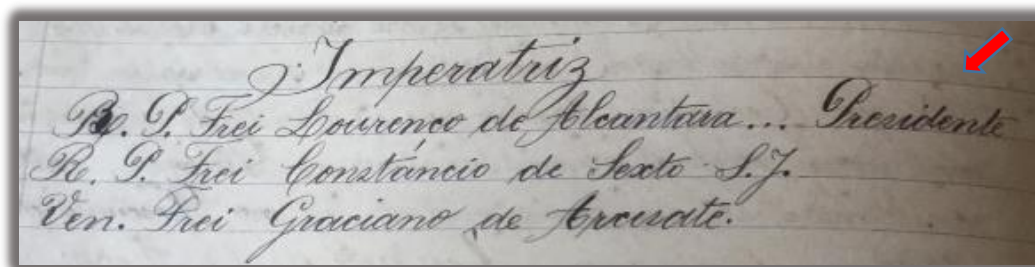 Imperatriz
R. P. Frei Lourenço de Alcantara... Presidente
R. P. Frei Constáncio de Sexto S. J.
Ven. Frei Graciano de Arcisate.